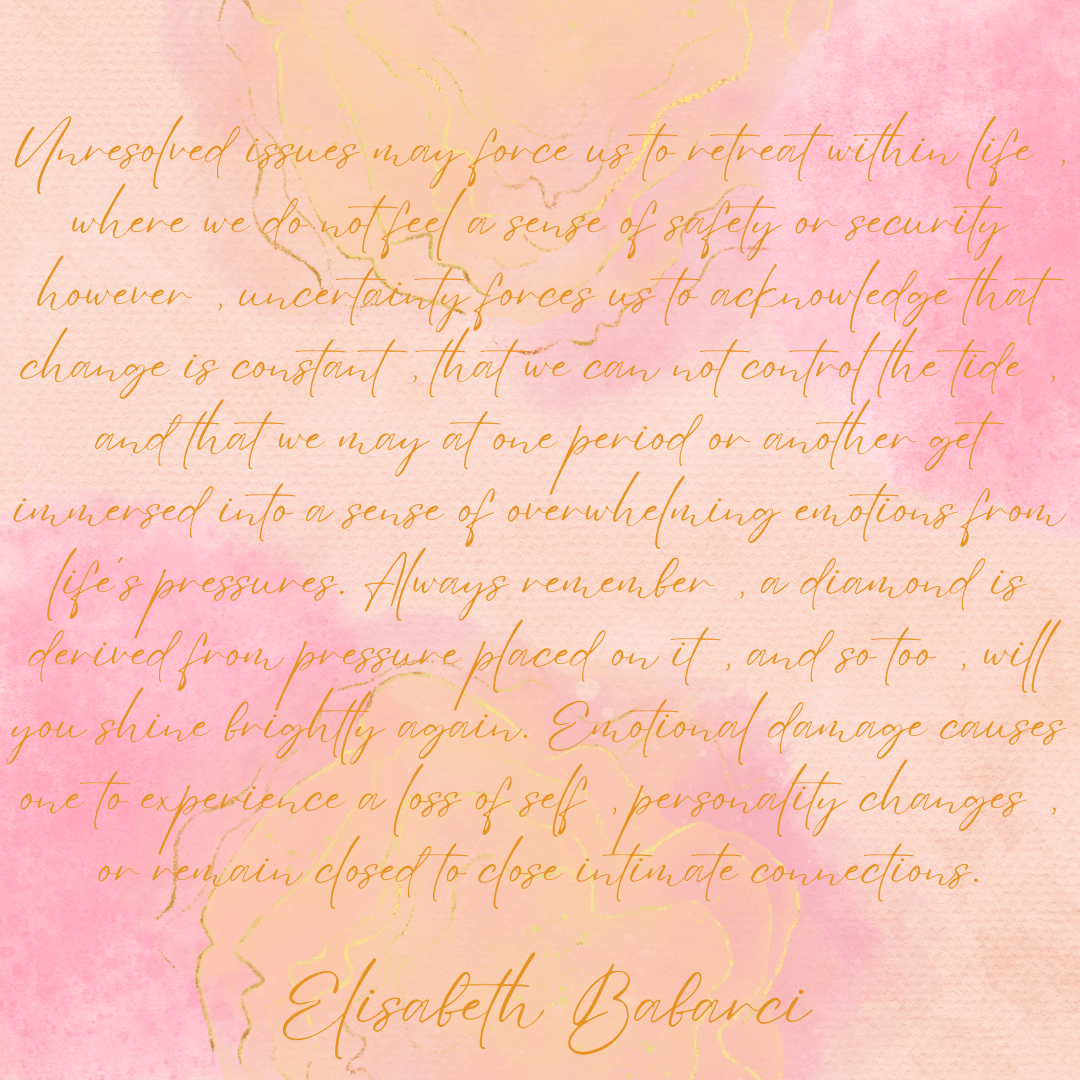 Unresolved issues may force us to retreat within life ,
where we do not feel a sense of safety or security
however , uncertainty forces us to acknowledge that
change is constant , that we can not control the tide ,
and that we may at one period or another get
immersed into a sense of overwhelming emotions from
life's pressures. Always remember , a diamond is
derived from pressure placed on it , and so too , will
you shine brightly again. Emotional damage causes
one to experience a loss of self , personality changes ,
or remain closed to close intimate connections.
Elisabeth Babarci